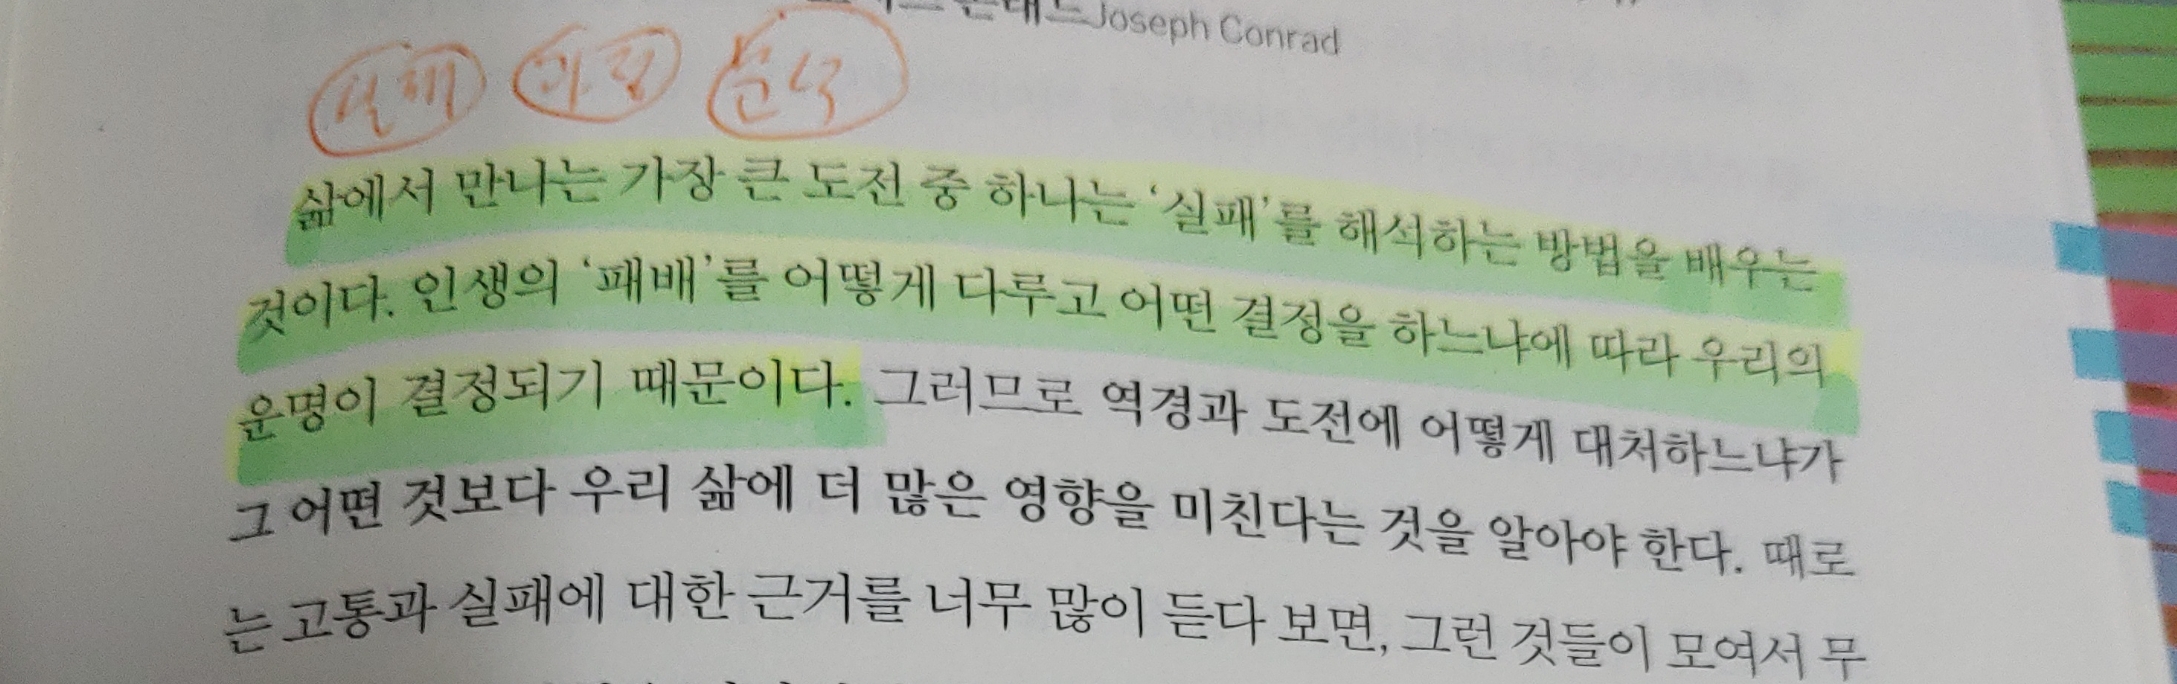 Joseph Conrad
실패 과정
삶에서 만나는 가장 큰 도전 중 하나는 ‘실패’를 해석하는 방법을 배우는
것이다. 인생의 ‘패배’를 어떻게 다루고 어떤 결정을 하느냐에 따라 우리의
운명이 결정되기 때문이다. 그러므로 역경과 도전에 어떻게 대처하느냐가
그 어떤 것보다 우리 삶에 더 많은 영향을 미친다는 것을 알아야 한다. 때로
는 고통과 실패에 대한 근거를 너무 많이 듣다 보면, 그런 것들이 모여서 무